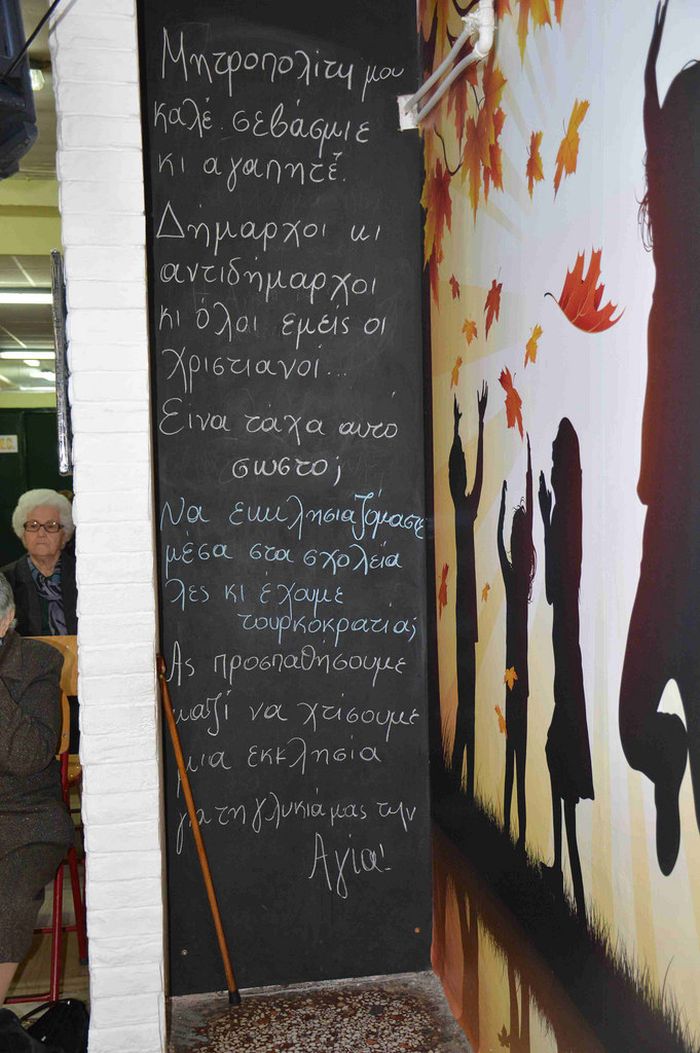 Μητροπολίτη μου
καλέ σεβάσμιε
κι αγαπητέ.
Δήμαρχοι κι
αντιδήμαρχοι
κι όλοι εμείς οι
χριστιανοί...
Είνα τάχα αυτό
σωστό;
Να εκκλησιαζόμαστε
μέσα στα σχολεία
λες κι έχουμε
τουρκοκρατία;
Ας προσπαθήσουμε
μαζί να χτίσουμε
μια εκκλησία
για τη γλυκιά μας την
Αγία!